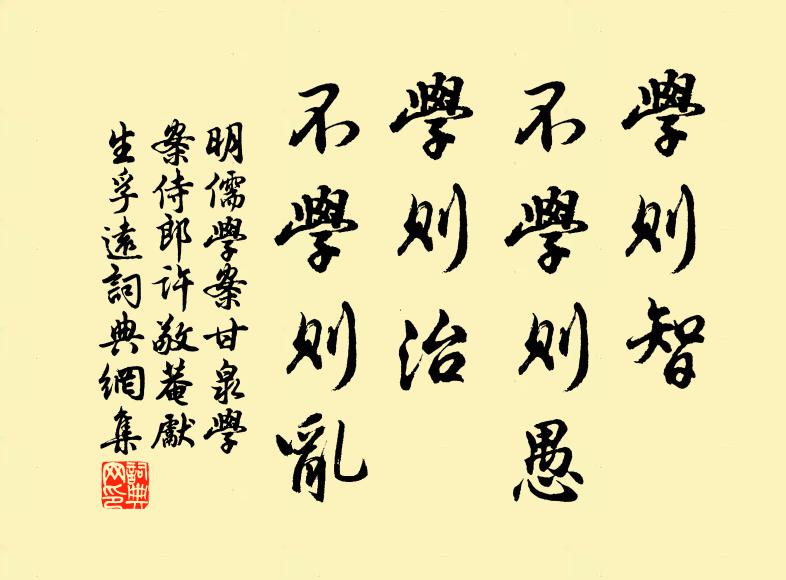 學則智
不學則愚
學則治
不學則亂
明儒學案甘泉學
案侍郎許敬菴獻
生孚遠詞典網集
詞典
网印